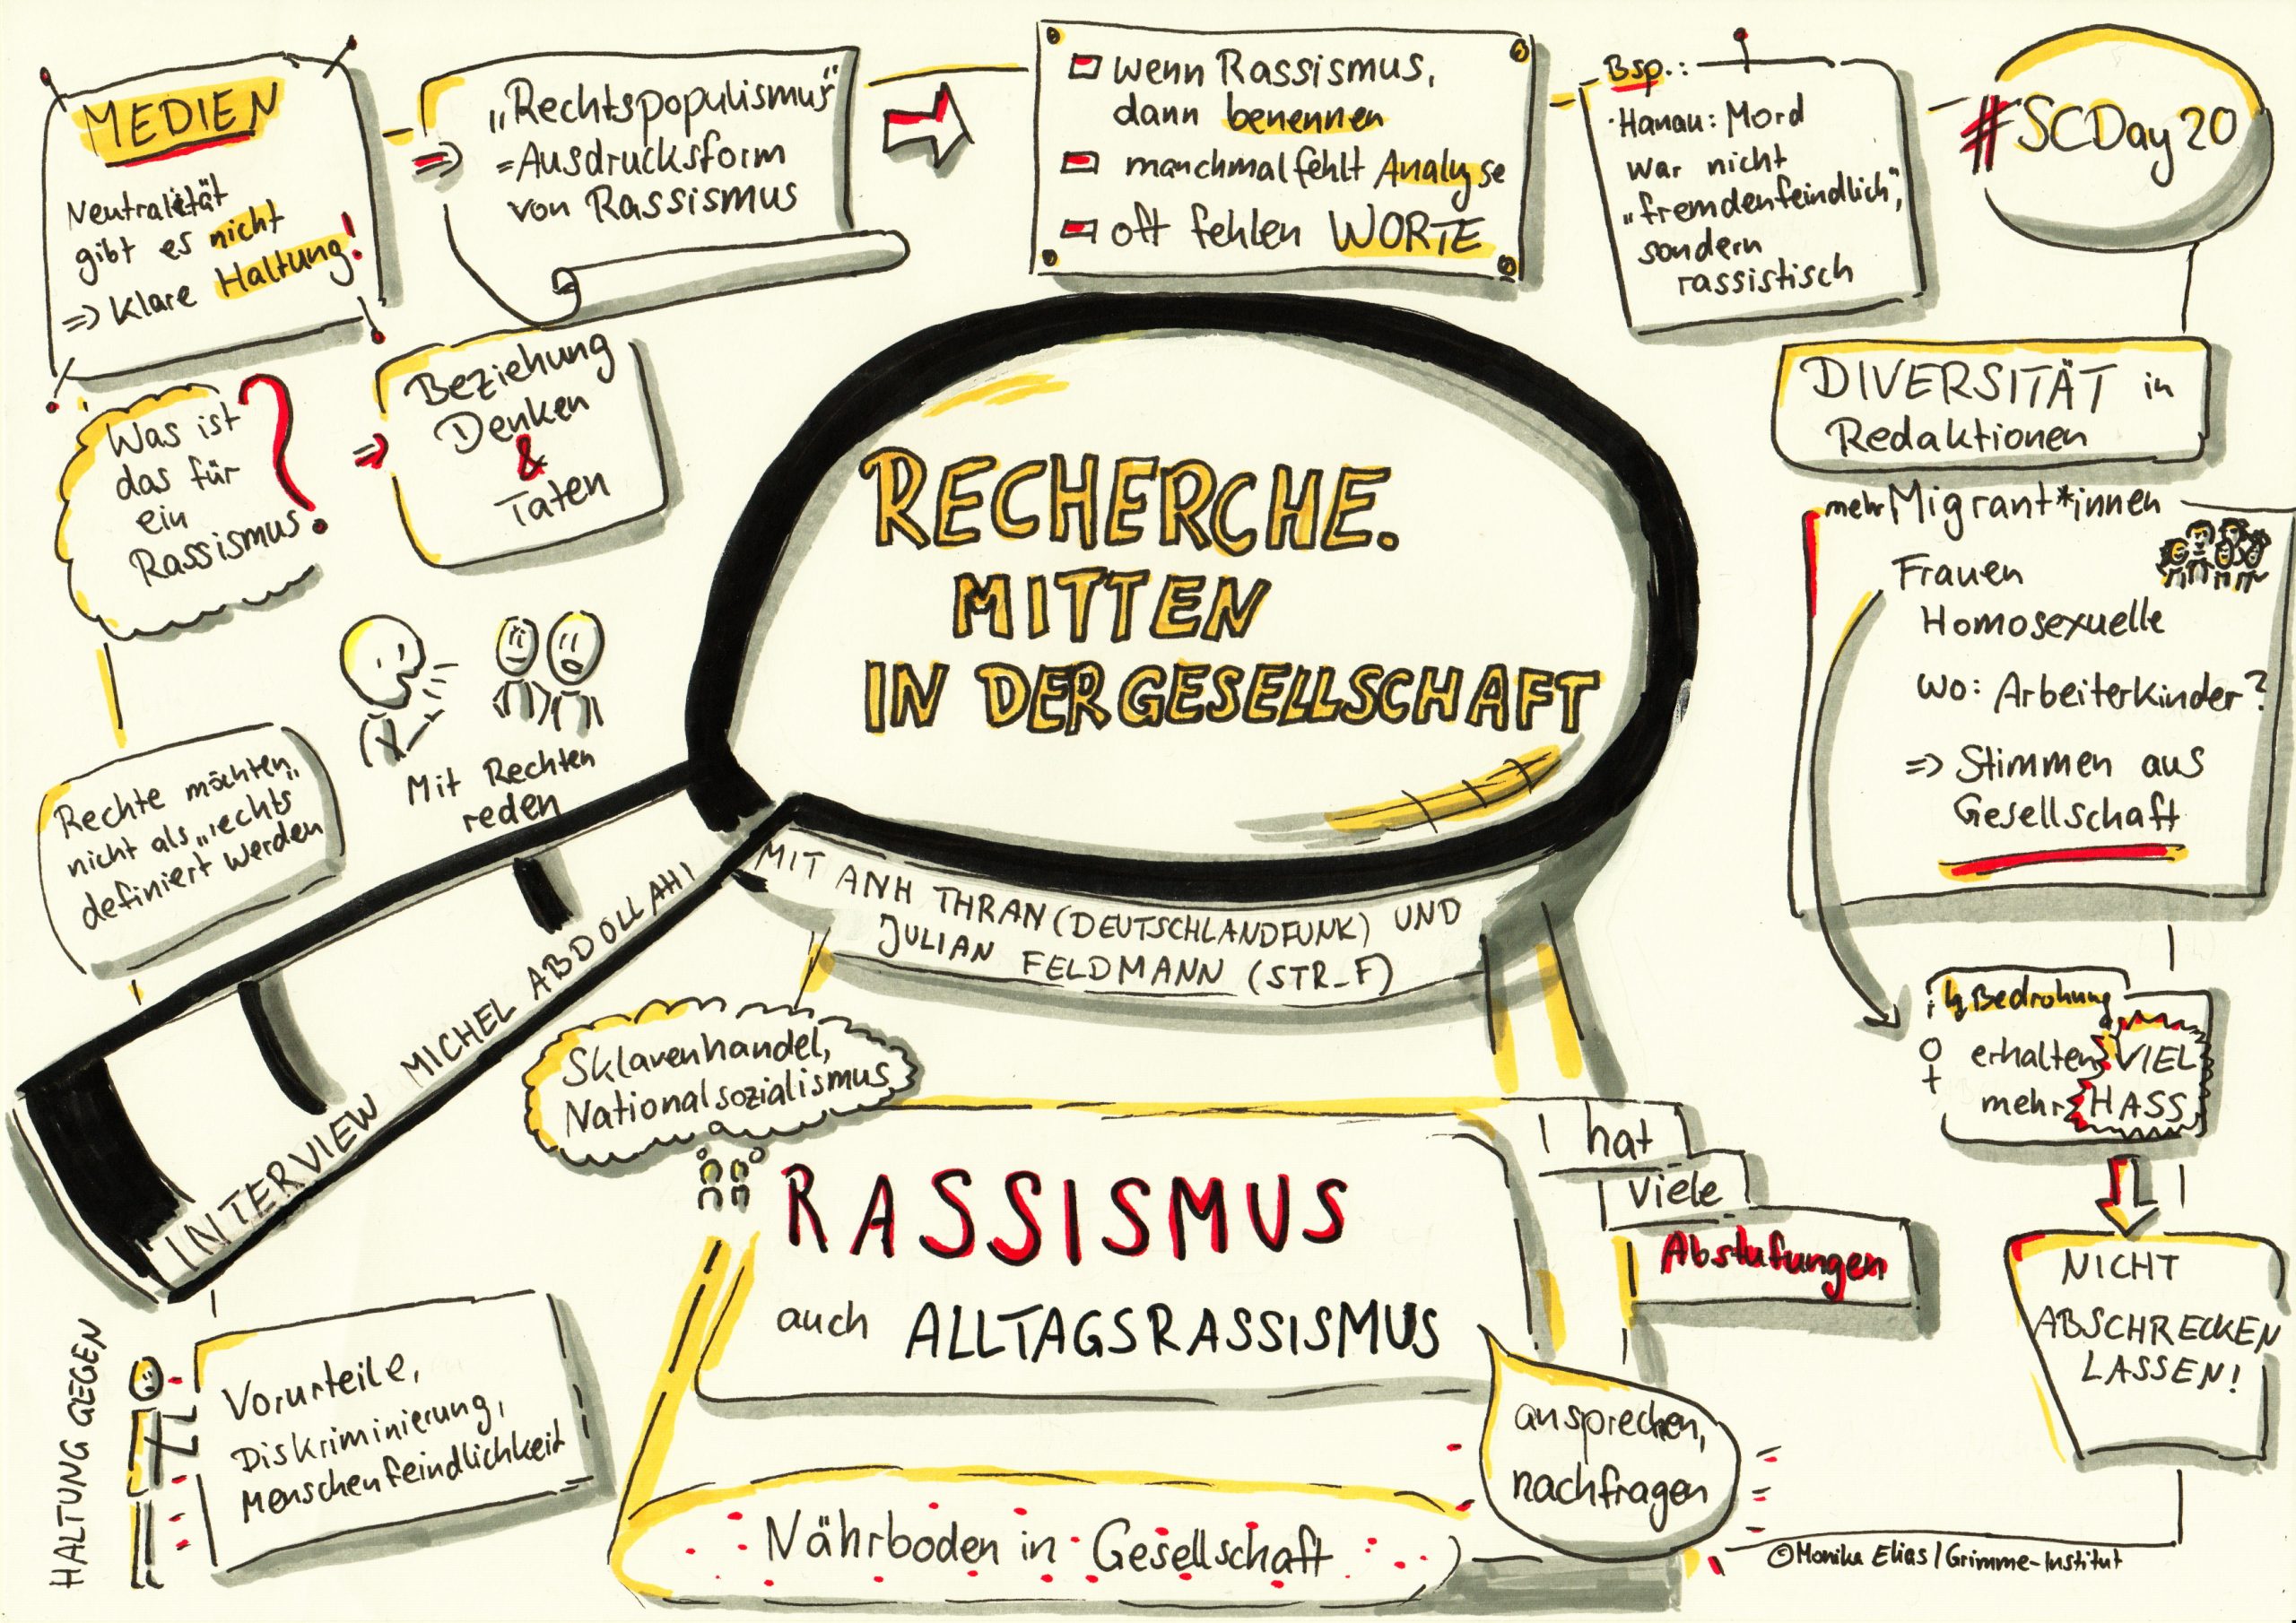 MEDIEN
Neutralität
gibt es nicht
=> Klare Haltung!
"Rechtspopulismus"
=> =Ausdrucksform
von Rassismus
wenn Rassismus,
dann benennen
manchmal fehlt Analyse
oft fehlen WORTE
Bsp.:
·Hanau: Mord
war nicht
"fremdenfeindlich",
sondern
rassistisch
#SCDay20
Was ist
das für
ein
Rassismus?
=> Beziehung
Denken
&
Taten
DIVERSITÄT in
Redaktionen
mehr Migrant*innen
Frauen
Homosexuelle
wo: Arbeiterkinder?
=> Stimmen aus
Gesellschaft
RECHERCHE.
MITTEN
IN DER GESELLSCHAFT
MIT ANH THRAN (DEUTSCHLANDFUNK) UND
JULIAN FELDMANN (STR_F)
Mit Rechten
reden
Rechte möchten
nicht als "rechts"
definiert werden
INTERVIEW MICHEL ABDOLLAHI
Bedrohung
♀ erhalten VIEL
mehr HASS
NICHT
ABSCHRECKEN
LASSEN!
Sklavenhandel,
Nationalsozialismus
RASSISMUS
auch ALLTAGSRASSISMUS
hat
viele
Abstufungen
ansprechen,
nachfragen
Nährboden in Gesellschaft
HALTUNG GEGEN
Vorurteile,
Diskriminierung,
Menschenfeindlichkeit
©Monika Elias/Grimme-Institut